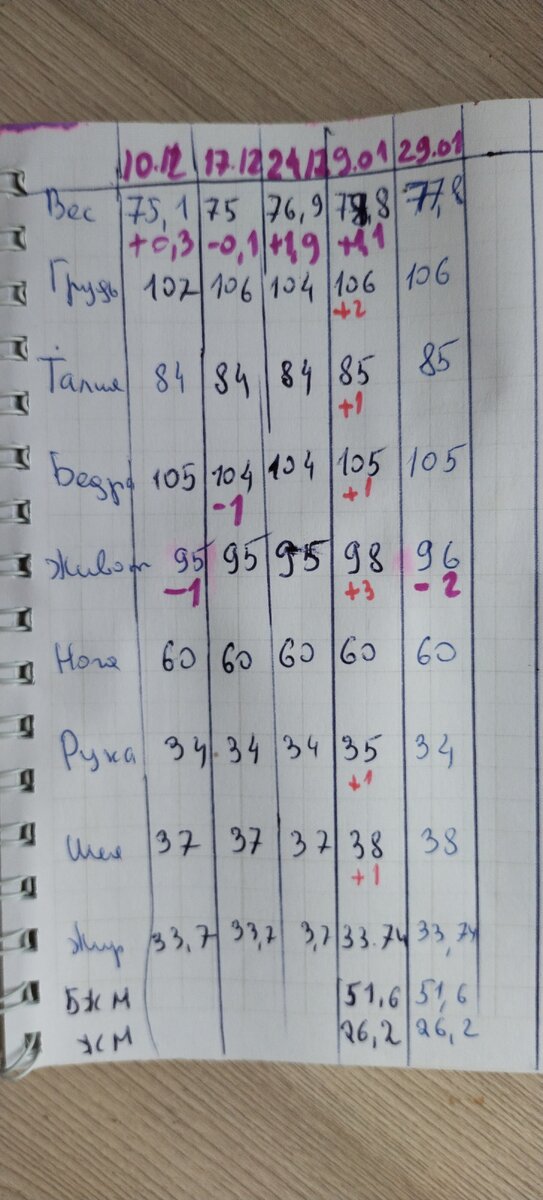 10.12 17.12 24.12 9.01 29.01
Вес 75,1 75 76,9 77,8
+0,3 -0,1 +1,9 +1,1
Грудь 107 106 104 106 106
+2
Талия 84 84 84 85 85
+1
Бедра 105 104 104 105 105
-1 +1
Живот 95 95 95 98 96
-1 +3 -2
Нога 60 60 60 60 60
Рука 34 34 34 35 34
+1
Шея 37 37 37 38 38
+1
Жир 33,7 33,7 3,7 33.74 33,74
БЖМ 51,6 51,6
ЖМ 26,2 26,2